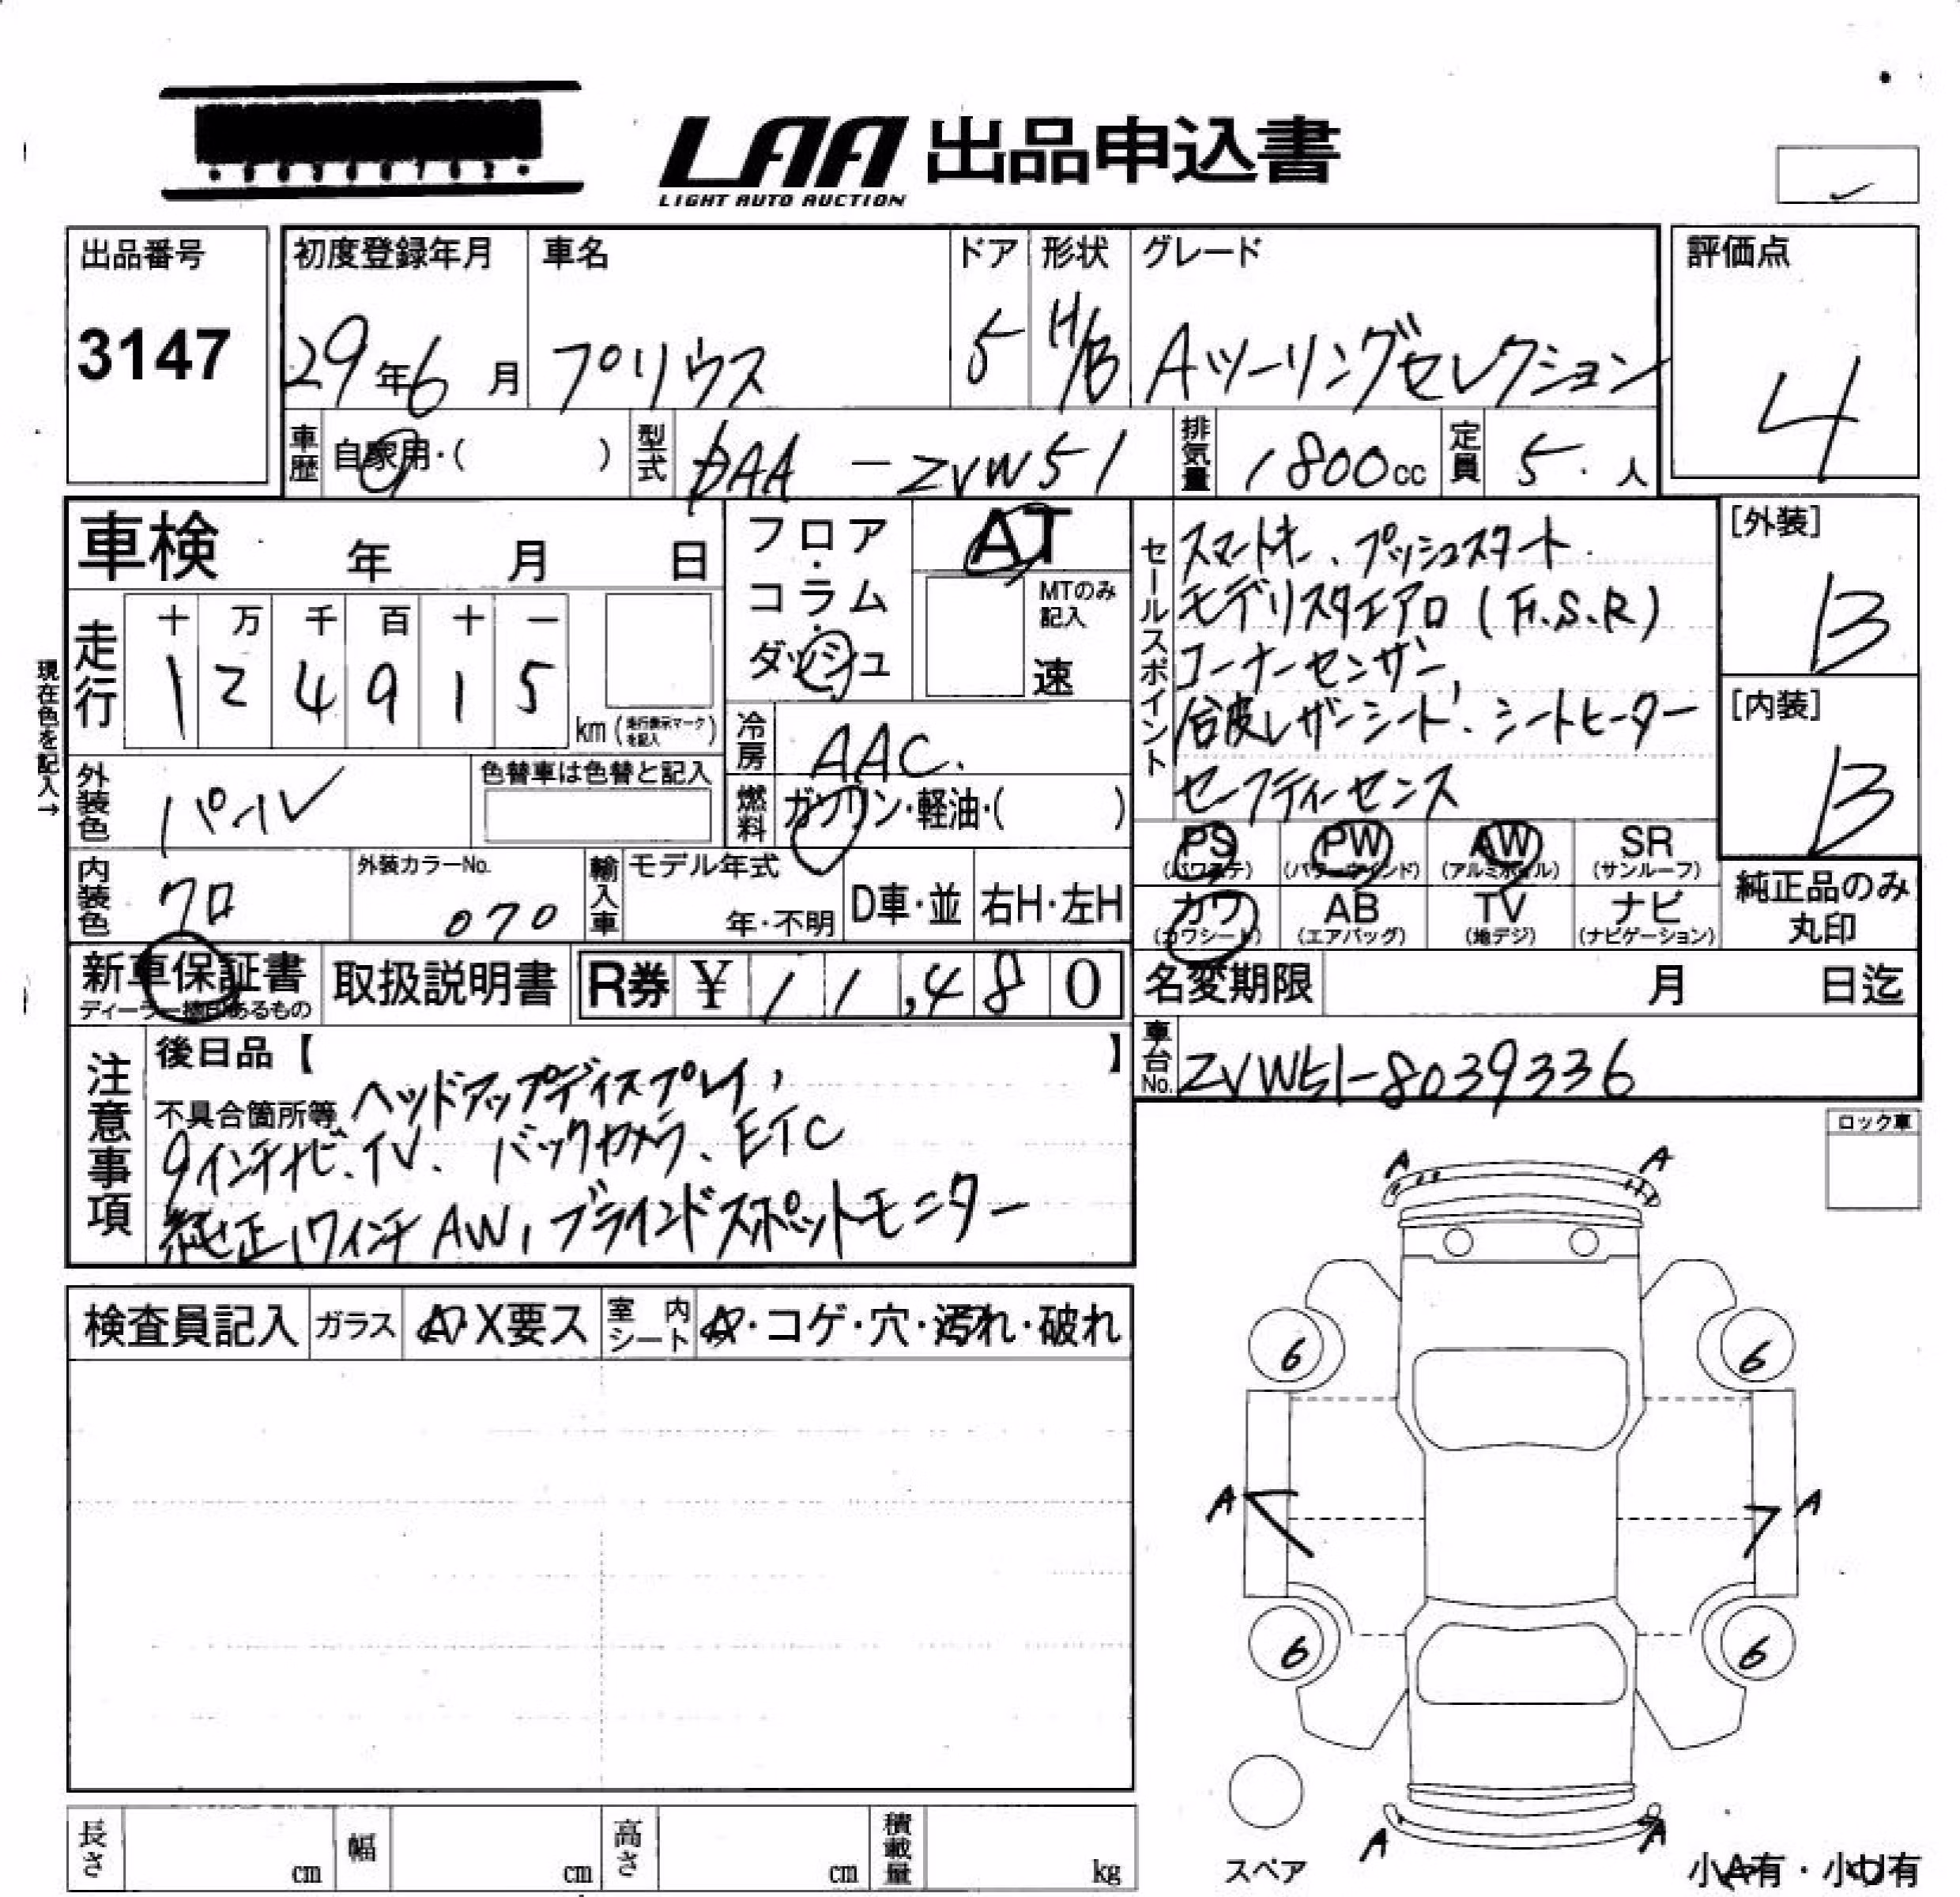 LAA 出品申込書
LIGHT AUTO AUCTION
出品番号
3147
初度登録年月
29年6月
車名
プリウス
ドア
5
形状
H/B
グレード
Aツーリングセレクション
評価点
4
車歴
自家用・( )
型式
DAA-ZVW51
排気量
1800cc
定員
5人
車検 年 月 日
フロア・コラム・ダッシュ
AT
MTのみ記入
速
走行
十 万 千 百 十 一
1 2 4 9 1 5
km(走行表示マークを記入)
現在色を記入→
冷房
AAC.
燃料
ガソリン・軽油・( )
外装色
パール
色替車は色替と記入
内装色
クロ
外装カラーNo.
070
輸入車
モデル年式
年・不明
D車・並
右H・左H
セールスポイント
スマートキー、プッシュスタート
モデリスタエアロ(F.S.R)
コーナーセンサー、
合皮レザーシート、シートヒーター
セーフティーセンス
[外装]
B
[内装]
B
PS
(パワステ)
PW
(パワーウインド)
AW
(アルミホイル)
SR
(サンルーフ)
カワ
(カワシート)
AB
(エアバッグ)
TV
(地デジ)
ナビ
(ナビゲーション)
純正品のみ丸印
新車保証書
ディーラー捺印あるもの
取扱説明書
R券 ¥11,480
名変期限 月 日迄
車台No.
ZVW51-8039336
注意事項
後日品【 】
不具合箇所等
ヘッドアップディスプレイ,
9インチナビ、TV、バックカメラ、ETC
純正17インチAW,ブラインドスポットモニター
ロック車
検査員記入
ガラス
A・X要ス
室内シート
A・コゲ・穴・汚れ・破れ
A A
6 6
A A
6 6
A A
スペア
小A有・小U有
長さ cm
幅 cm
高さ cm
積載量 kg